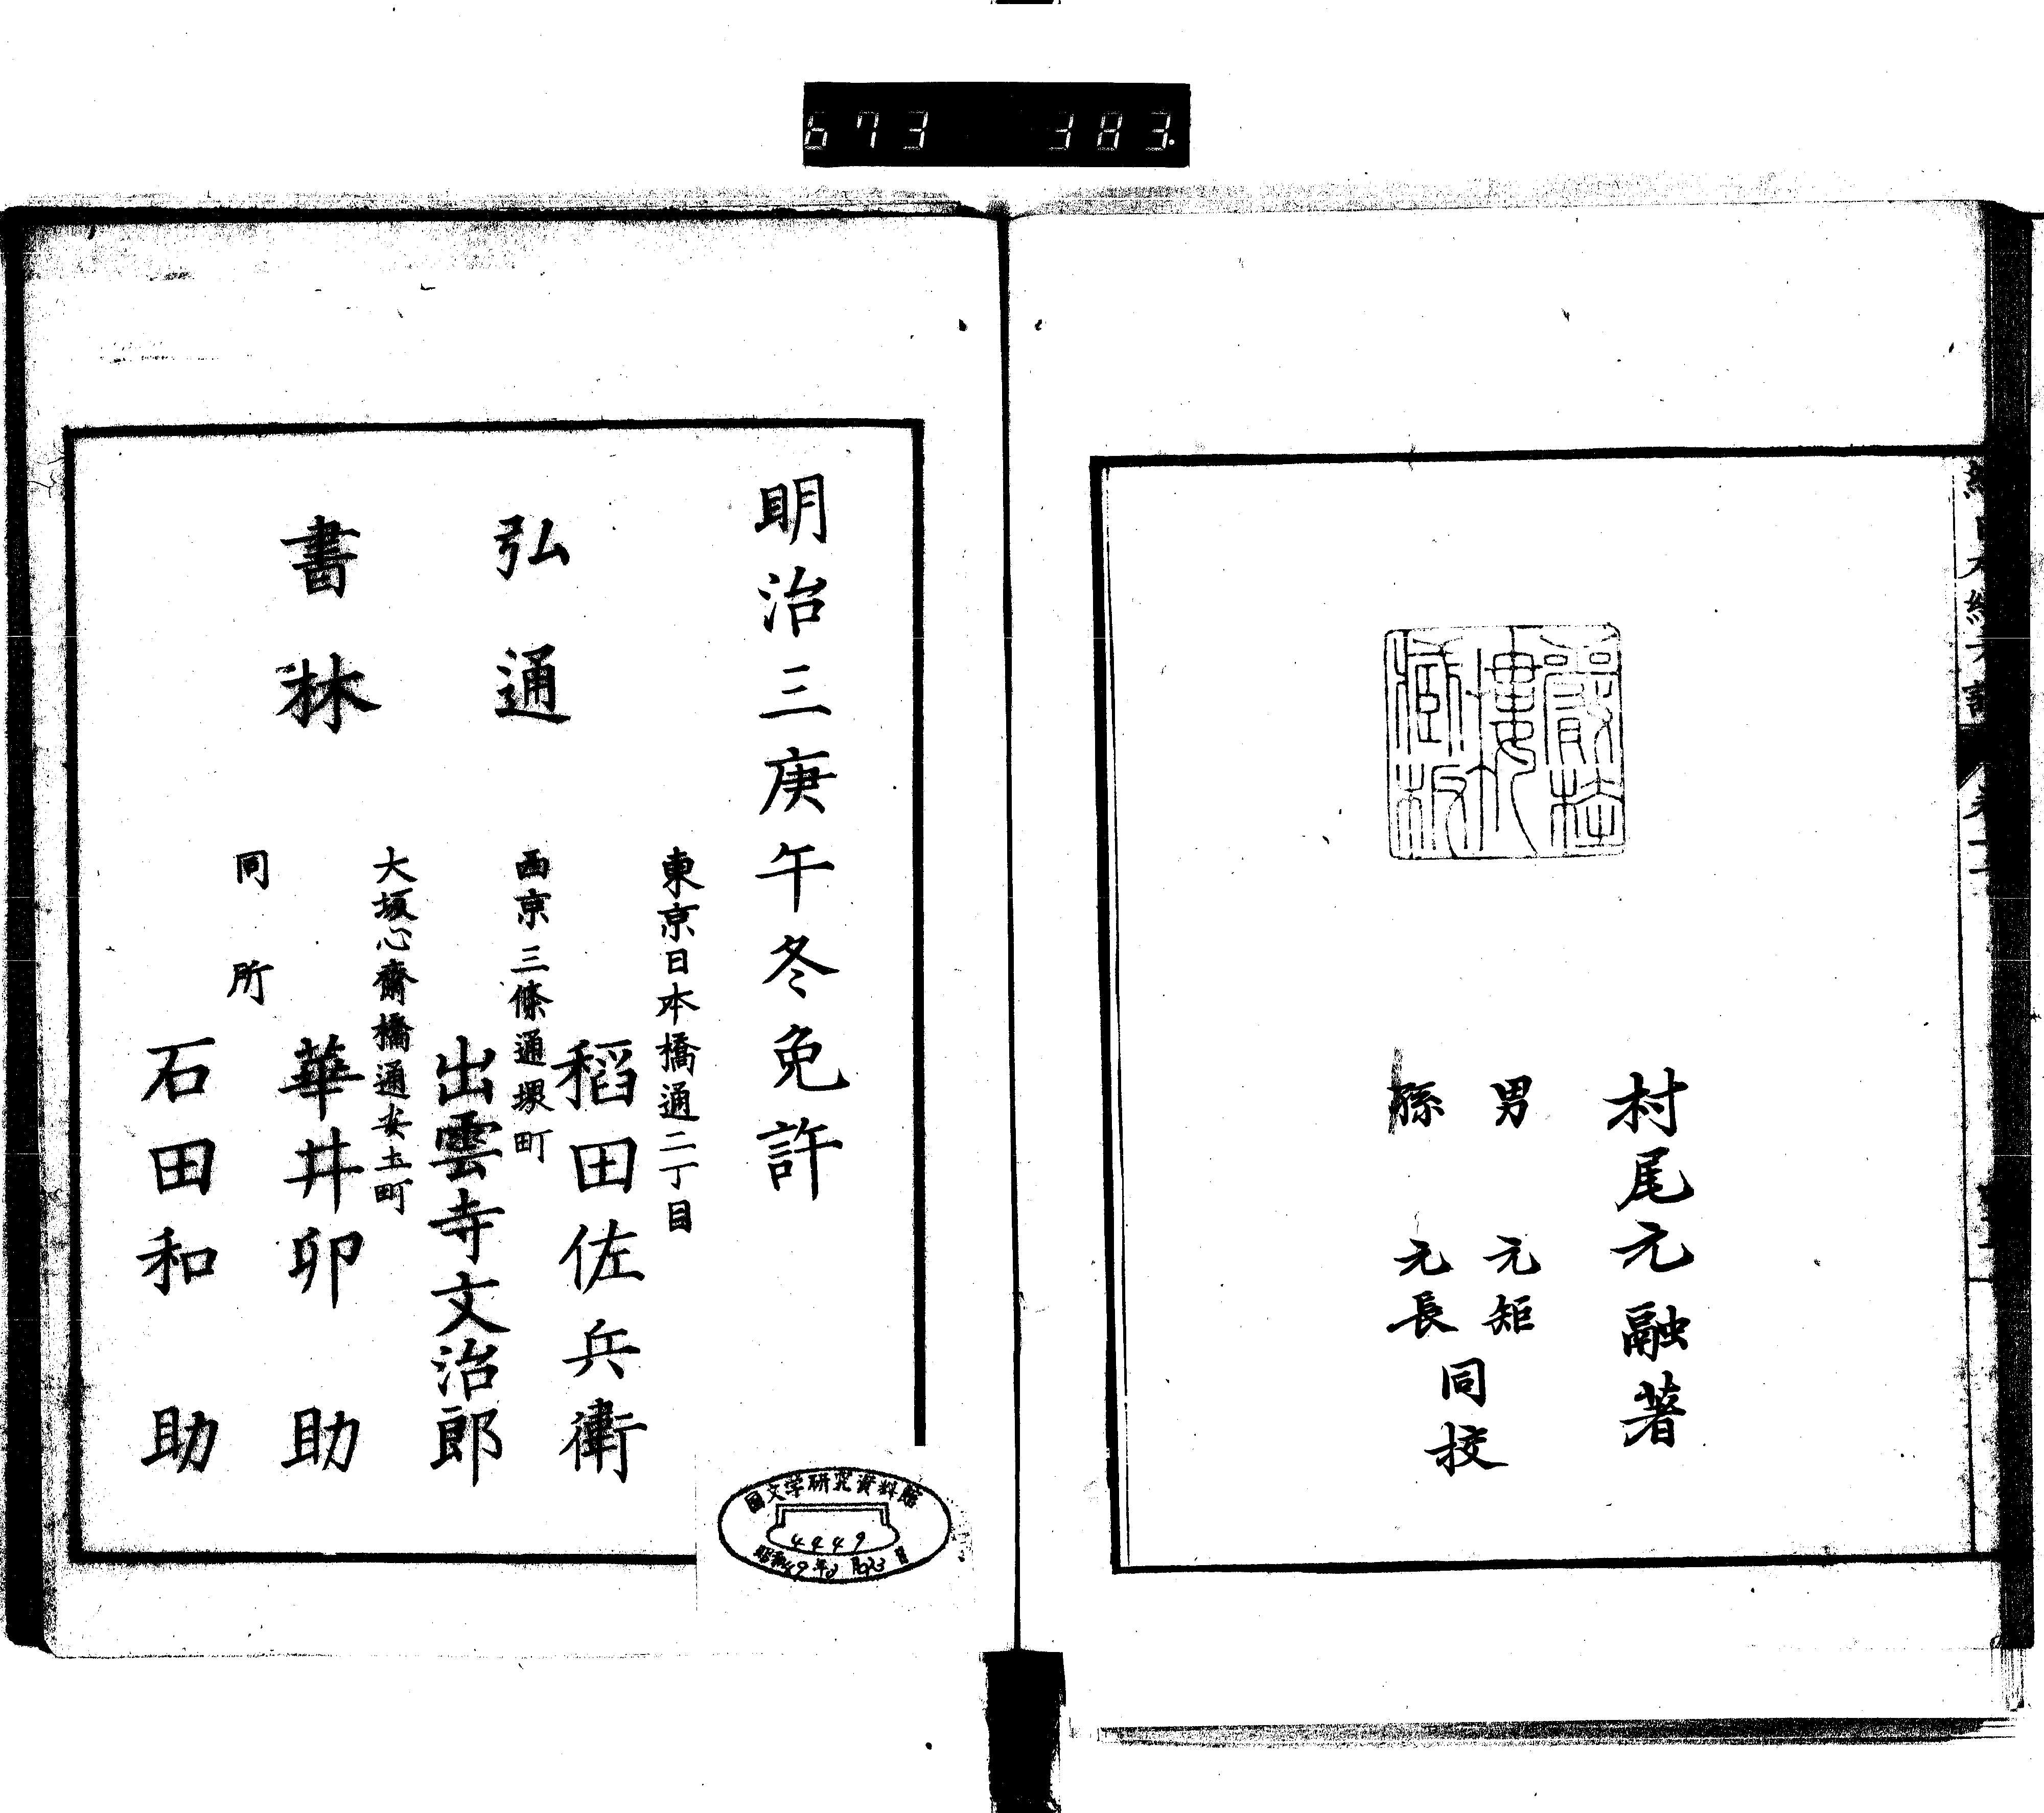 673 383.
嚴桂
樓
臧板
村尾元融著
男 元矩
孫 元長
同校
明治三庚午冬免許
弘通
書林
東京日本橋通二丁目
稻田佐兵衛
西京三條通堺町
出雲寺文治郎
大坂心齋橋通安土町
華井卯助
同所
石田和助
國文学研究資料館
4449
昭和49年3月23日